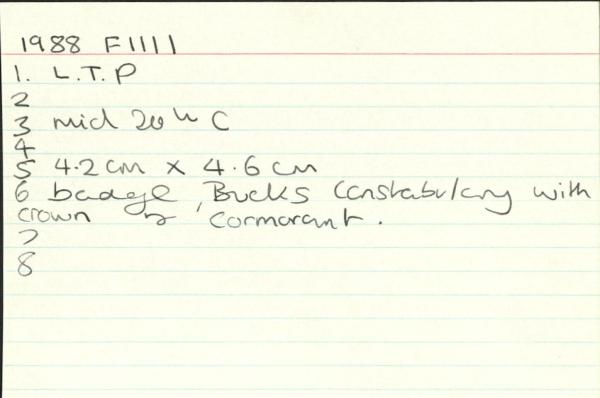 1988 F1111
1. L.T.P
2
3 mid 20th C
4
5 4.2cm x 4.6cm
6 badge, Bucks Constabulary with
crown & cormorant.
7
8